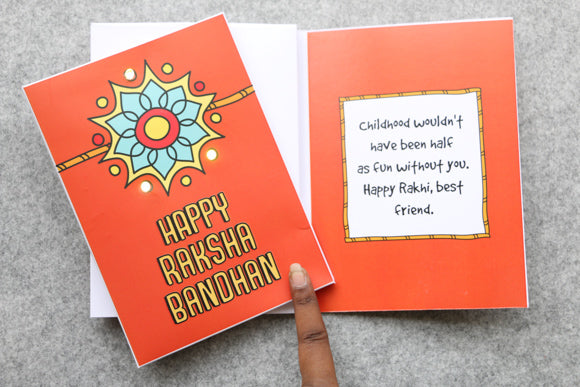 HAPPY
RAKSHA
BANDHAN
Childhood wouldn't
have been half
as fun without you.
Happy Rakhi, best
friend.